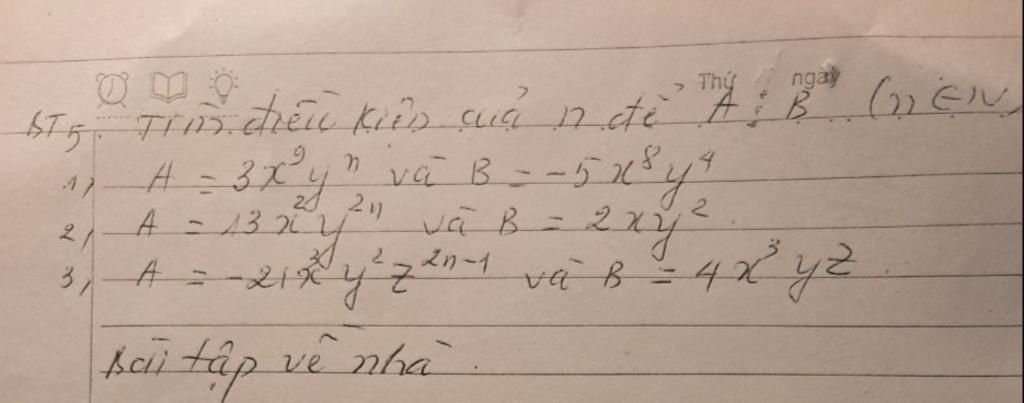 Thứ ngày
BT5. Tìm điều kiện của n để A ⋮ B (n ∈ N)
1, A = 3x⁹yⁿ và B = -5x⁸y⁴
2, A = 13x²y²ⁿ và B = 2xy²
3, A = -21x³y²z²ⁿ⁻¹ và B = 4x³yz.
Bài tập về nhà.